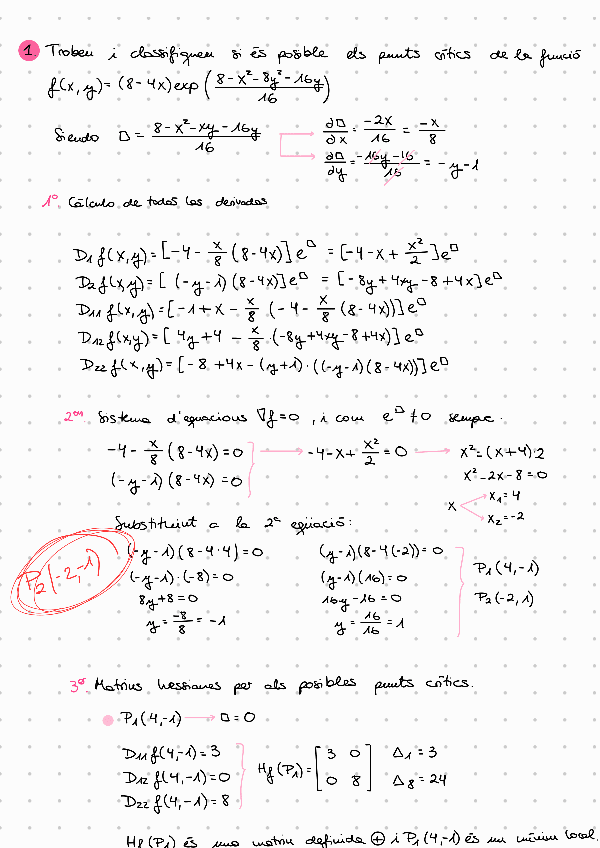 1 Trobeu i classifiqueu si és posible els punts crítics de la funció
f(x, y) = (8-4x) exp ( (8-x²-8y²-16y)/16 )
Siendo □ = (8-x²-xy-16y)/16
∂□/∂x = -2x/16 = -x/8
∂□/∂y = (-16y-16)/16 = -y-1
1º Cálculo de todas las derivadas
D₁ f(x,y) = [-4 - x/8 (8-4x)] e^□ = [-4-x+ x²/2] e^□
D₂ f(x,y) = [ (-y-1)(8-4x)] e^□ = [-8y+4xy-8+4x] e^□
D₁₁ f(x,y) = [-1+x - x/8 (-4 - x/8 (8-4x))] e^□
D₁₂ f(x,y) = [ 4y+4 - x/8 ·(-8y+4xy-8+4x)] e^□
D₂₂ f(x,y) = [-8+4x-(y+1)·((-y-1)(8-4x))] e^□
2on Sistema d'equacions ∇f=0, i com e^□ ≠ 0 sempre.
-4 - x/8 (8-4x) = 0 → -4-x+ x²/2 = 0 → x²=(x+4)·2
(-y-1)(8-4x) = 0
x²-2x-8=0
x
x₁=4
x₂=-2
Substituint a la 2ª eqüació:
(-y-1)(8-4·4)=0
(-y-1)·(-8)=0
8y+8=0
y = -8/8 = -1
(y-1)(8-4(-2))=0
(y-1)(16)=0
16y-16=0
y = 16/16 = 1
P₁(4,-1)
P₂(-2,1)
P₂(-2,-1)
3º Matrius hessianes per als posibles punts crítics.
P₁(4,-1) → □=0
D₁₁ f(4,-1)=3
D₁₂ f(4,-1)=0
D₂₂ f(4,-1)=8
Hf(P₁)= [3 0
0 8]
Δ₁ = 3
Δ₈ = 24
Hf(P₁) és una matriu definida ⊕ i P₁(4,-1) és un mínim local.